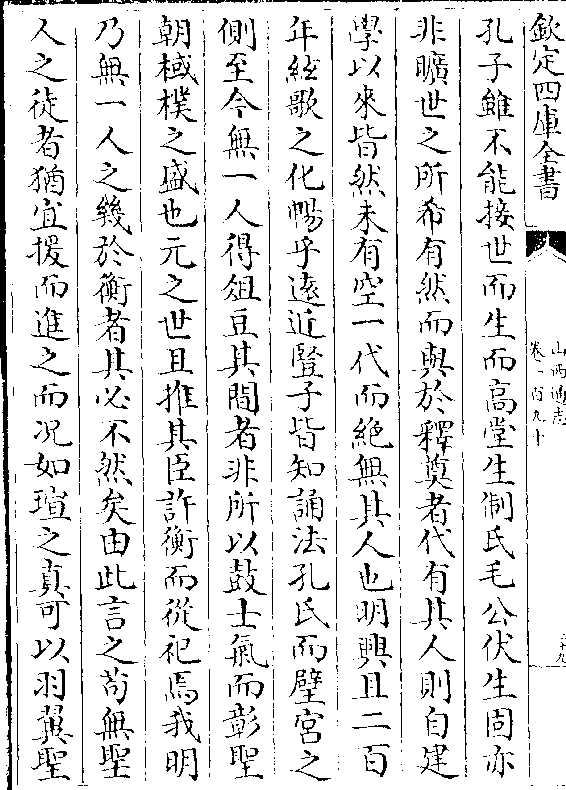 欽定四庫全書
山西通志
卷一百九十
孔子雖不能接世而生而高堂生制氏毛公伏生固亦
非曠世之所希有然而與於釋奠者代有其人則自建
學以來皆然未有空一代而絶無其人也明興且二百
年絃歌之化暢乎遠近豎子皆知誦法孔氏而璧宮之
側至今無一人得俎豆其間者非所以鼓士氣而彰聖
朝棫樸之盛也元之世且推其臣許衡而從祀焉我明
乃無一人之幾於衡者其必不然矣由此言之茍無聖
人之徒者猶宜援而進之而况如瑄之真可以羽翼聖